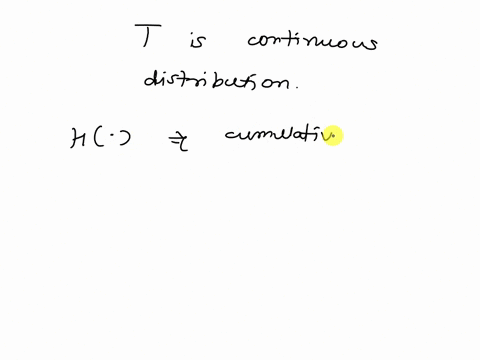 T is continuous
distribution.
H(·) ⇒ cumulativ